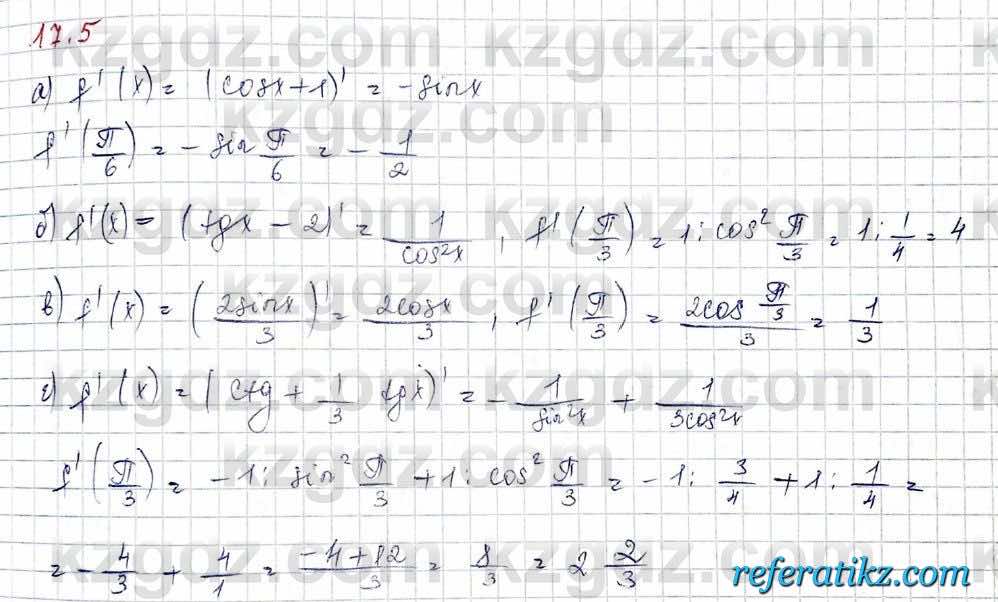 17.5
а) f'(x) = (cosx+1)' = -sinx
f'(π/6) = -sin π/6 = -1/2
б) f'(x) = (tgx - 2)' = 1/cos²x , f'(π/3) = 1 : cos² π/3 = 1 : 1/4 = 4
в) f'(x) = (2sinx/3)' = 2cosx/3 , f'(π/3) = 2cos π/3 /3 = 1/3
г) f'(x) = (ctg + 1/3 tgx)' = -1/sin²x + 1/3cos²x
f'(π/3) = -1 : sin² π/3 + 1 : cos² π/3 = -1 : 3/4 + 1 : 1/4 =
= -4/3 + 4/1 = -4+12/3 = 8/3 = 2 2/3
kzgdz.com
referatikz.com